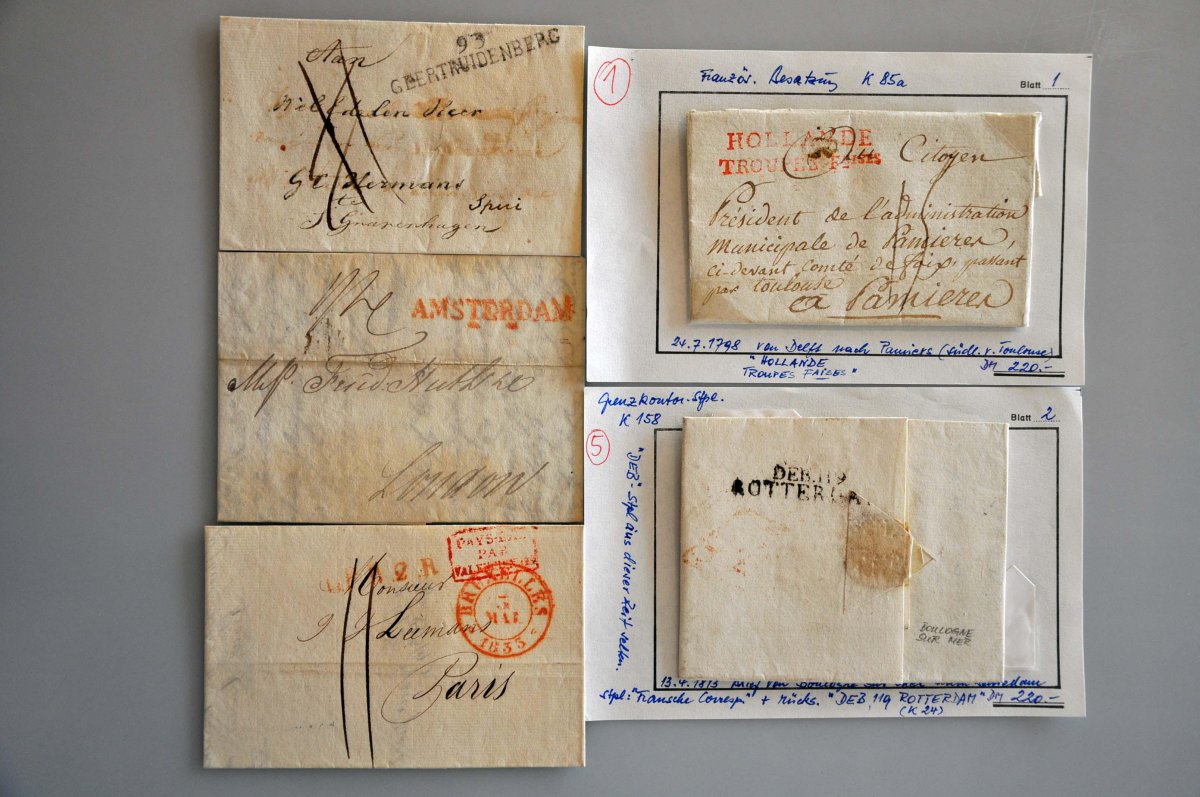 93
GEERTRUIDENBERG
Aan
Heer
Hermans
te
Spui
S Gravenhagen
AMSTERDAM
London
L.P.B.2.R
PAYS-BAS
PAR
BRUXELLES
5
MAI
1833
Monsieur
Leemans
Paris
1
Französ. Besatzung K 85a
Blatt 1
HOLLANDE
TROUPES-FAISES
Au Citoyen
Président de l'administration
Municipale de Pamieres,
ci-devant Comté de foix, passant
par toulouse
a Pamieres
24.7.1798 von Delft nach Pamiers (südl. v. Toulouse)
"HOLLANDE
TROUPES FAISES"
DM 220.-
Grenzkontor-Stpl.
K 158
Blatt 2
5
"DEB"-Stpl aus dieser Zeit selten.
DEB.119
ROTTERDA
BOULOGNE
SUR MER
13.4.1813
Stpl: "Fransche Corresp" + rücks. "DEB. 119 ROTTERDAM" DM 220.-
(K 24)